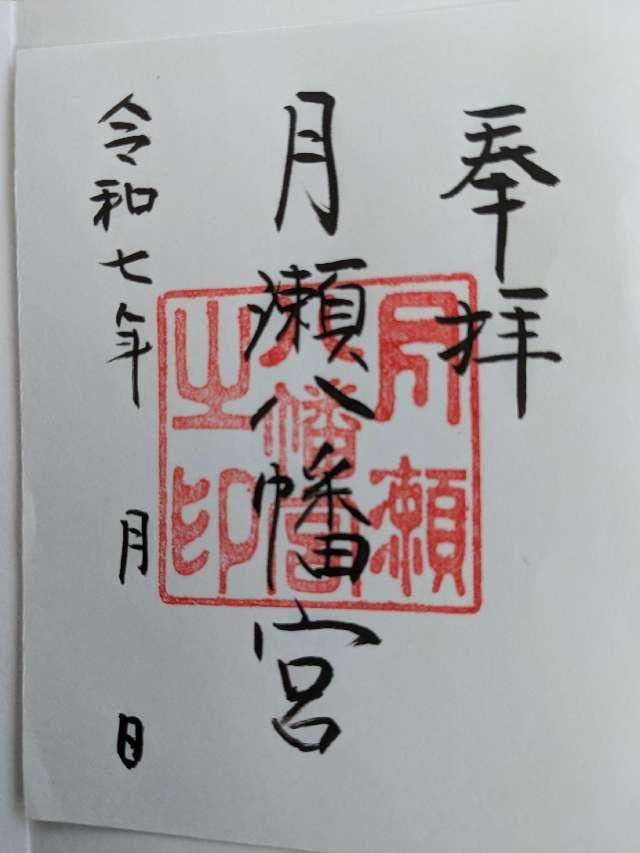 奉拝
月瀬八幡宮
令和七年 月 日
月瀬
八幡宮
之印